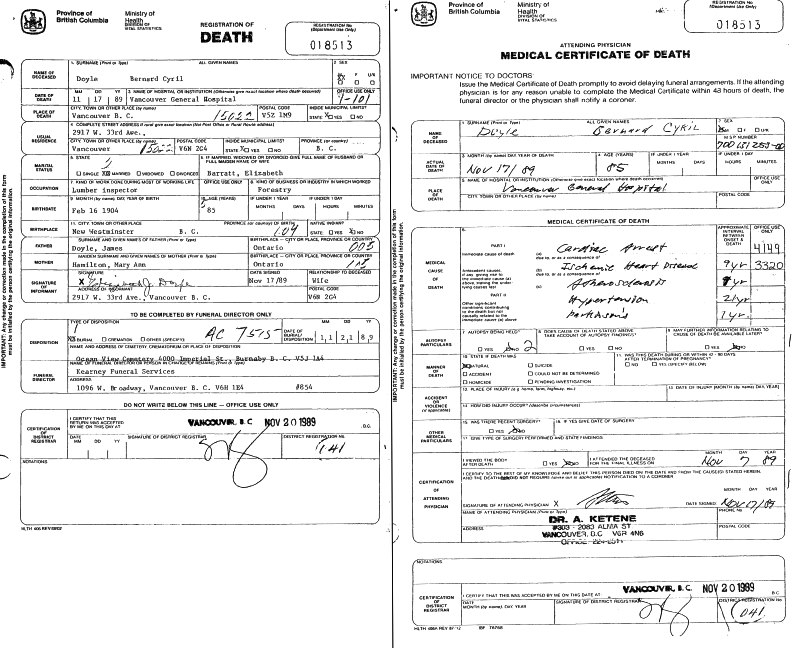 Province of
British Columbia
Ministry of
Health
DIVISION OF
VITAL STATISTICS
REGISTRATION OF
DEATH
REGISTRATION No
(Department Use Only)
018513
NAME OF
DECEASED
1. SURNAME (Print or Type) ALL GIVEN NAMES 2. SEX
Doyle Bernard Cyril
DATE OF
DEATH
MM DD YY 3. NAME OF HOSPITAL OR INSTITUTION (Otherwise give exact location where death occurred) OFFICE USE ONLY
11 17 89 Vancouver General Hospital 1-101
PLACE OF
DEATH
CITY, TOWN OR OTHER PLACE (by name) POSTAL CODE INSIDE MUNICIPAL LIMITS?
Vancouver B. C. 15022 V5Z 1M9 STATE YES NO
USUAL
RESIDENCE
4. COMPLETE STREET ADDRESS
2917 W. 33rd Ave.,
CITY, TOWN OR OTHER PLACE (by name) POSTAL CODE INSIDE MUNICIPAL LIMITS? PROVINCE (or country)
Vancouver 15022 V6N 2G4 STATE YES NO B. C.
MARITAL
STATUS
5. STATE 6. IF MARRIED, WIDOWED OR DIVORCED GIVE FULL NAME OF HUSBAND OR FULL MAIDEN NAME OF WIFE
SINGLE MARRIED WIDOWED DIVORCED Barratt, Elizabeth
OCCUPATION
7. KIND OF WORK DONE DURING MOST OF WORKING LIFE OFFICE USE ONLY 8. KIND OF BUSINESS OR INDUSTRY IN WHICH WORKED
Lumber inspector Forestry
BIRTHDATE
9. MONTH (by name) DAY YEAR OF BIRTH 10. AGE (YEARS) IF UNDER 1 YEAR IF UNDER 1 DAY
Feb 16 1904 85 MONTHS DAYS HOURS MINUTES
BIRTHPLACE
11. CITY, TOWN OR OTHER PLACE PROVINCE (or country) OF BIRTH NATIVE INDIAN?
New Westminster B. C. 104 STATE YES NO
FATHER
SURNAME AND GIVEN NAMES OF FATHER (Print or Type) BIRTHPLACE - CITY OR PLACE, PROVINCE OR COUNTRY
Doyle, James Ontario 005
MOTHER
MAIDEN SURNAME AND GIVEN NAMES OF MOTHER (Print or Type) BIRTHPLACE - CITY OR PLACE, PROVINCE OR COUNTRY
Hamilton, Mary Ann Ontario
SIGNATURE
OF
INFORMANT
SIGNATURE DATE SIGNED RELATIONSHIP TO DECEASED
X Nov 17/89 Wife
ADDRESS OF INFORMANT POSTAL CODE
2917 W. 33rd Ave., Vancouver B. C. V6N 2G4
TO BE COMPLETED BY FUNERAL DIRECTOR ONLY
DISPOSITION
TYPE OF DISPOSITION
BURIAL CREMATION OTHER (SPECIFY) AC 7515 DATE OF BURIAL/DISPOSITION 1,1 2,1 8,9
NAME AND ADDRESS OF CEMETERY, CREMATORIUM OR PLACE OF DISPOSITION
Ocean View Cemetery 4000 Imperial St. Burnaby B.C. V5J 1A4
FUNERAL
DIRECTOR
NAME OF FUNERAL DIRECTOR OR PERSON IN CHARGE OF REMAINS (Print or Type)
Kearney Funeral Services
ADDRESS:
1096 W. Broadway, Vancouver V6H 1E4 #854
DO NOT WRITE BELOW THIS LINE — OFFICE USE ONLY
CERTIFICATION
OF
DISTRICT
REGISTRAR
I CERTIFY THAT THIS
RETURN WAS ACCEPTED
BY ME ON THIS DAY AT VANCOUVER, B.C NOV 20 1989 B.C.
DATE
MM DD YY SIGNATURE OF DISTRICT REGISTRAR DISTRICT REGISTRATION No.
041
NOTATIONS
IMPORTANT: Any change or correction made in the completion of this form
must be initialed by the person certifying the original information.
Province of
British Columbia
Ministry of
Health
DIVISION OF
VITAL STATISTICS
REGISTRATION No
(Department Use Only)
018513
ATTENDING PHYSICIAN
MEDICAL CERTIFICATE OF DEATH
IMPORTANT NOTICE TO DOCTORS:
Issue the Medical Certificate of Death promptly to avoid delaying funeral arrangements. If the attending
physician is for any reason unable to complete the Medical Certificate within 48 hours of death, the
funeral director or the physician shall notify a coroner.
NAME OF
DECEASED
1. SURNAME (Print or Type) ALL GIVEN NAMES 2. SEX
Doyle Bernard Cyril
M.S.P NUMBER
ACTUAL
DATE OF
DEATH
3. MONTH (by name) DAY YEAR OF DEATH 4. AGE (YEARS) IF UNDER 1 YEAR IF UNDER 1 DAY
Nov 17/89 85 MONTHS DAYS HOURS MINUTES
PLACE OF
DEATH
5. NAME OF HOSPITAL OR INSTITUTION (Otherwise give exact location where death occurred) OFFICE USE ONLY
Vancouver General Hospital
CITY, TOWN OR OTHER PLACE (by name) POSTAL CODE
MEDICAL CERTIFICATE OF DEATH
MEDICAL
CAUSE
OF
DEATH
6. APPROXIMATE INTERVAL BETWEEN ONSET & DEATH OFFICE USE ONLY
PART I
Immediate cause of death (a) Cardiac Arrest 4149
due to, or as a consequence of
(b) Ischemic Heart Disease 9 yr 3320
due to, or as a consequence of
(c) Atherosclerosis
PART II
Hypertension 2 yr
Parkinsons 1 yr
AUTOPSY
PARTICULARS
7. AUTOPSY BEING HELD? 8. DOES CAUSE OF DEATH STATED ABOVE TAKE ACCOUNT OF AUTOPSY FINDINGS? 9. MAY FURTHER INFORMATION RELATING TO CAUSE OF DEATH BE AVAILABLE LATER?
YES NO 2 YES NO YES NO
MANNER
OF
DEATH
10. STATE IF DEATH WAS
NATURAL SUICIDE
ACCIDENT COULD NOT BE DETERMINED
HOMICIDE PENDING INVESTIGATION
NO YES (SPECIFY BELOW)
ACCIDENT
OR
VIOLENCE
(if applicable)
12. PLACE OF INJURY (e.g. home, farm, highway, etc.) 13. DATE OF INJURY (MONTH (by name) DAY, YEAR)
14. HOW DID INJURY OCCUR? (describe circumstances)
OTHER
MEDICAL
PARTICULARS
15. WAS THERE RECENT SURGERY? 16. IF YES GIVE DATE OF SURGERY
YES NO
17. GIVE TYPE OF SURGERY PERFORMED AND STATE FINDINGS.
CERTIFICATION
OF
ATTENDING
PHYSICIAN
I VIEWED THE BODY
AFTER DEATH YES NO I ATTENDED THE DECEASED
FOR THE FINAL ILLNESS ON MONTH DAY YEAR
Nov 7 89
SIGNATURE OF ATTENDING PHYSICIAN X DATE SIGNED Nov 17/89
NAME OF ATTENDING PHYSICIAN (Print or Type) PHONE No
DR. A. KETENE
ADDRESS #303 - 2083 ALMA ST POSTAL CODE
VANCOUVER, B.C V6R 4N6
NOTATIONS
CERTIFICATION
OF
DISTRICT
REGISTRAR
I CERTIFY THAT THIS WAS ACCEPTED BY ME ON THIS DATE AT VANCOUVER, B.C. NOV 20 1989 B.C
DATE
MONTH (by name), DAY, YEAR SIGNATURE OF DISTRICT REGISTRAR DISTRICT REGISTRATION No.
041
IMPORTANT: Any change or correction made in the completion of this form
must be initialed by the person certifying the original information.